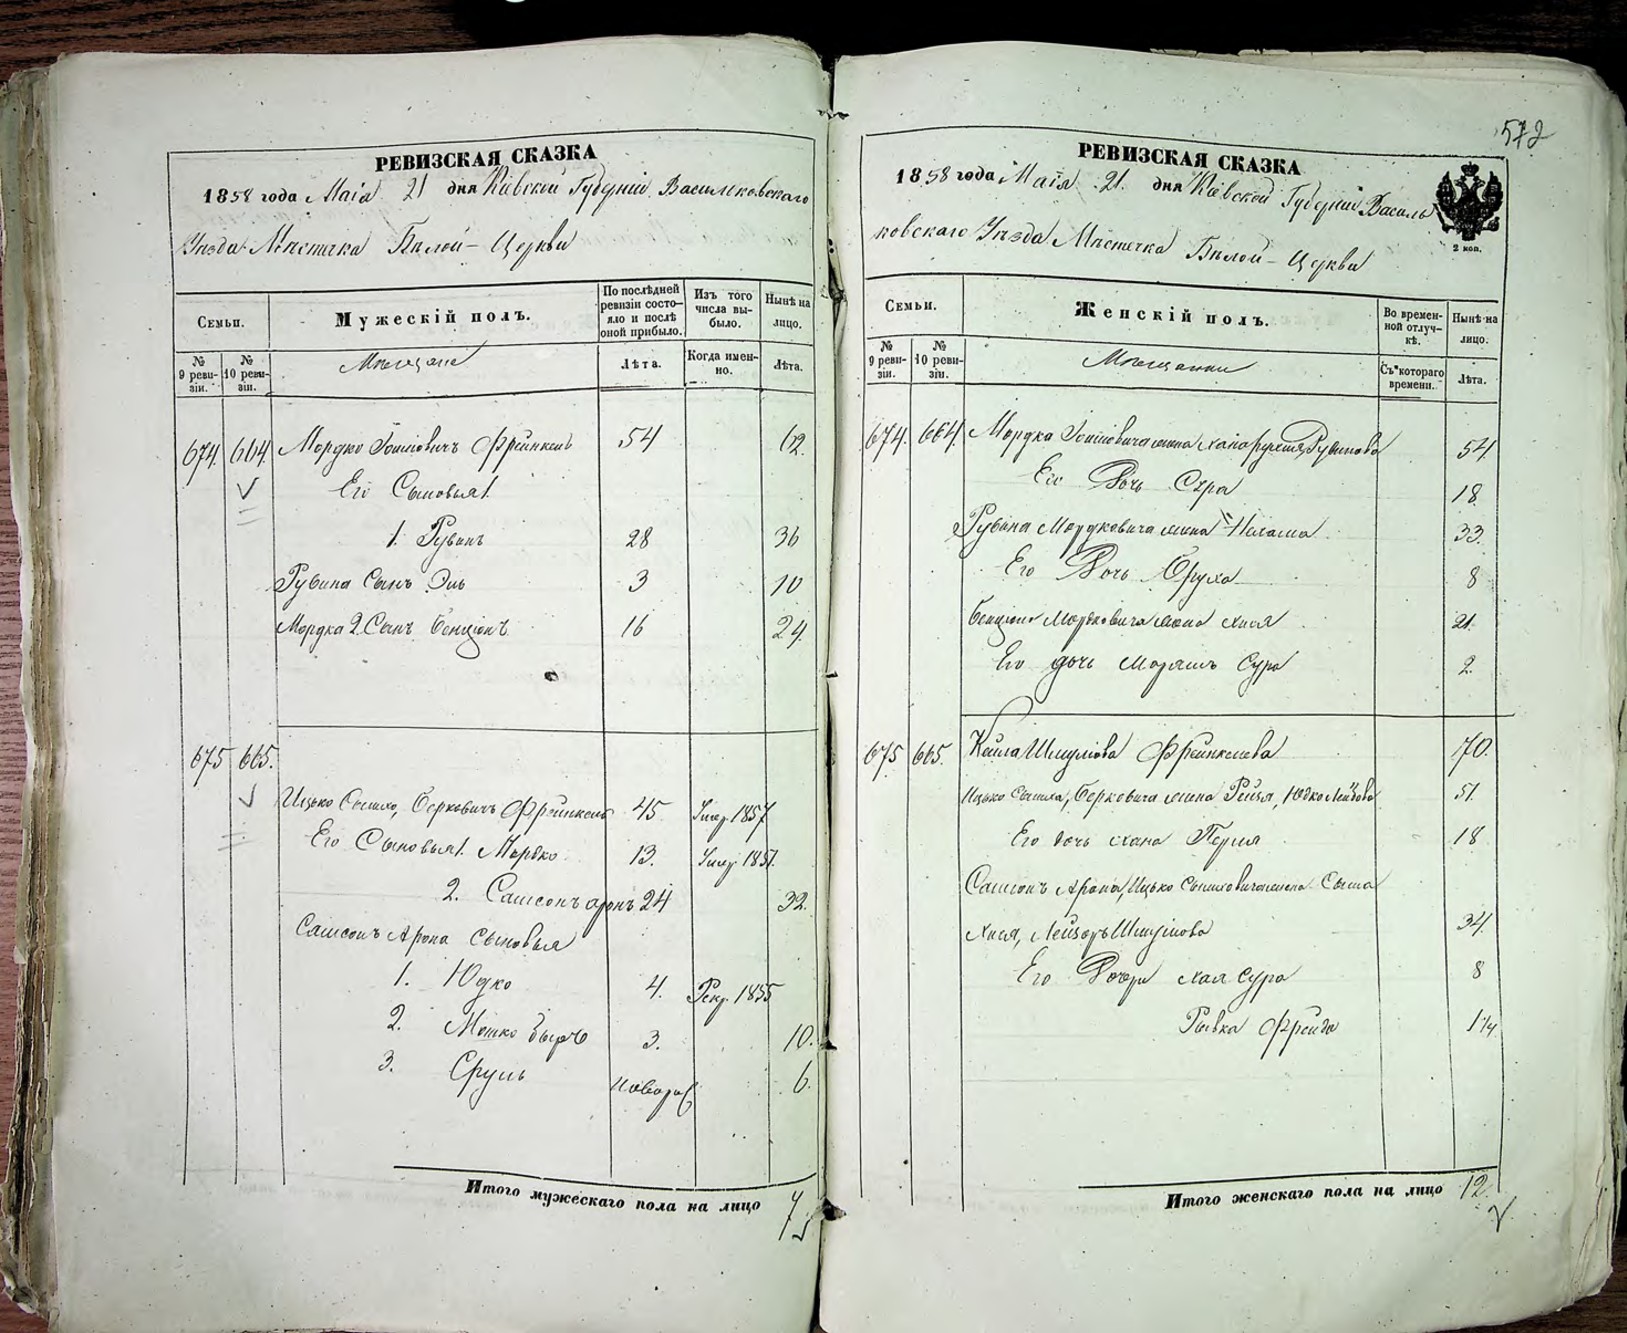 572
РЕВИЗСКАЯ СКАЗКА
1858 года Маія 21 дня Кіевской Губерніи Васильковскаго
Уѣзда Мѣстечка Бѣлой-Церкви
Семьи.
Мужескій полъ.
По послѣдней ревизіи состояло и послѣ оной прибыло.
Изъ того числа выбыло.
Нынѣ на лицо.
№ 9 ревизіи.
№ 10 ревизіи.
Мѣщане
Лѣта.
Когда именно.
Лѣта.
674. 664. Мордко Френкель 54 62.
Его Сыновья 1.
1. Рувинъ 28 36
Рувина Сынъ Эль 3 10
Мордка 2. Сынъ Бенціонъ 16 24.
675 665.
Ицько Сымхо, Берковичъ Френкель 45 Умер. 1857
Его Сыновья 1. Мордко 13. Умер. 1857.
2. Самсонъ Аронъ 24 32.
Самсонъ Арона Сыновья
1. Юдко 4. Рекр. 1855
2. Мошко Беръ 3. 10.
3. Сруль новорож 6.
Итого мужескаго пола на лицо 7
РЕВИЗСКАЯ СКАЗКА
1858 года Маія 21. дня Кіевской Губерніи Василь
ковскаго Уѣзда Мѣстечка Бѣлой-Церкви
2 коп.
Семьи.
Женскій полъ.
Во временной отлучкѣ.
Нынѣ на лицо.
№ 9 ревизіи.
№ 10 ревизіи.
Мѣщанки
Съ котораго времени.
Лѣта.
674. 664. Мордка жена Рувинова 54.
Его Дочь Сура 18.
Рувина Мордковича жена 33.
Его Дочь Фрума 8
Бенціона Мордковича жена Хися 21.
Его дочь Маріямъ Сура 2.
675 665. Кейла Шмулова Френкелева 70.
Ицько Сымха, Берковича жена Рейзя, Юдко Лейбова 51.
Его дочь Хана Перля 18
Самсонъ Арона, Ицько Сымховича жена Сыма
Хися, Лейзоръ Шмулова 34.
Его Дочери Хая Сура 8
Рывка Фрейда 1 1/4
Итого женскаго пола на лицо 12.